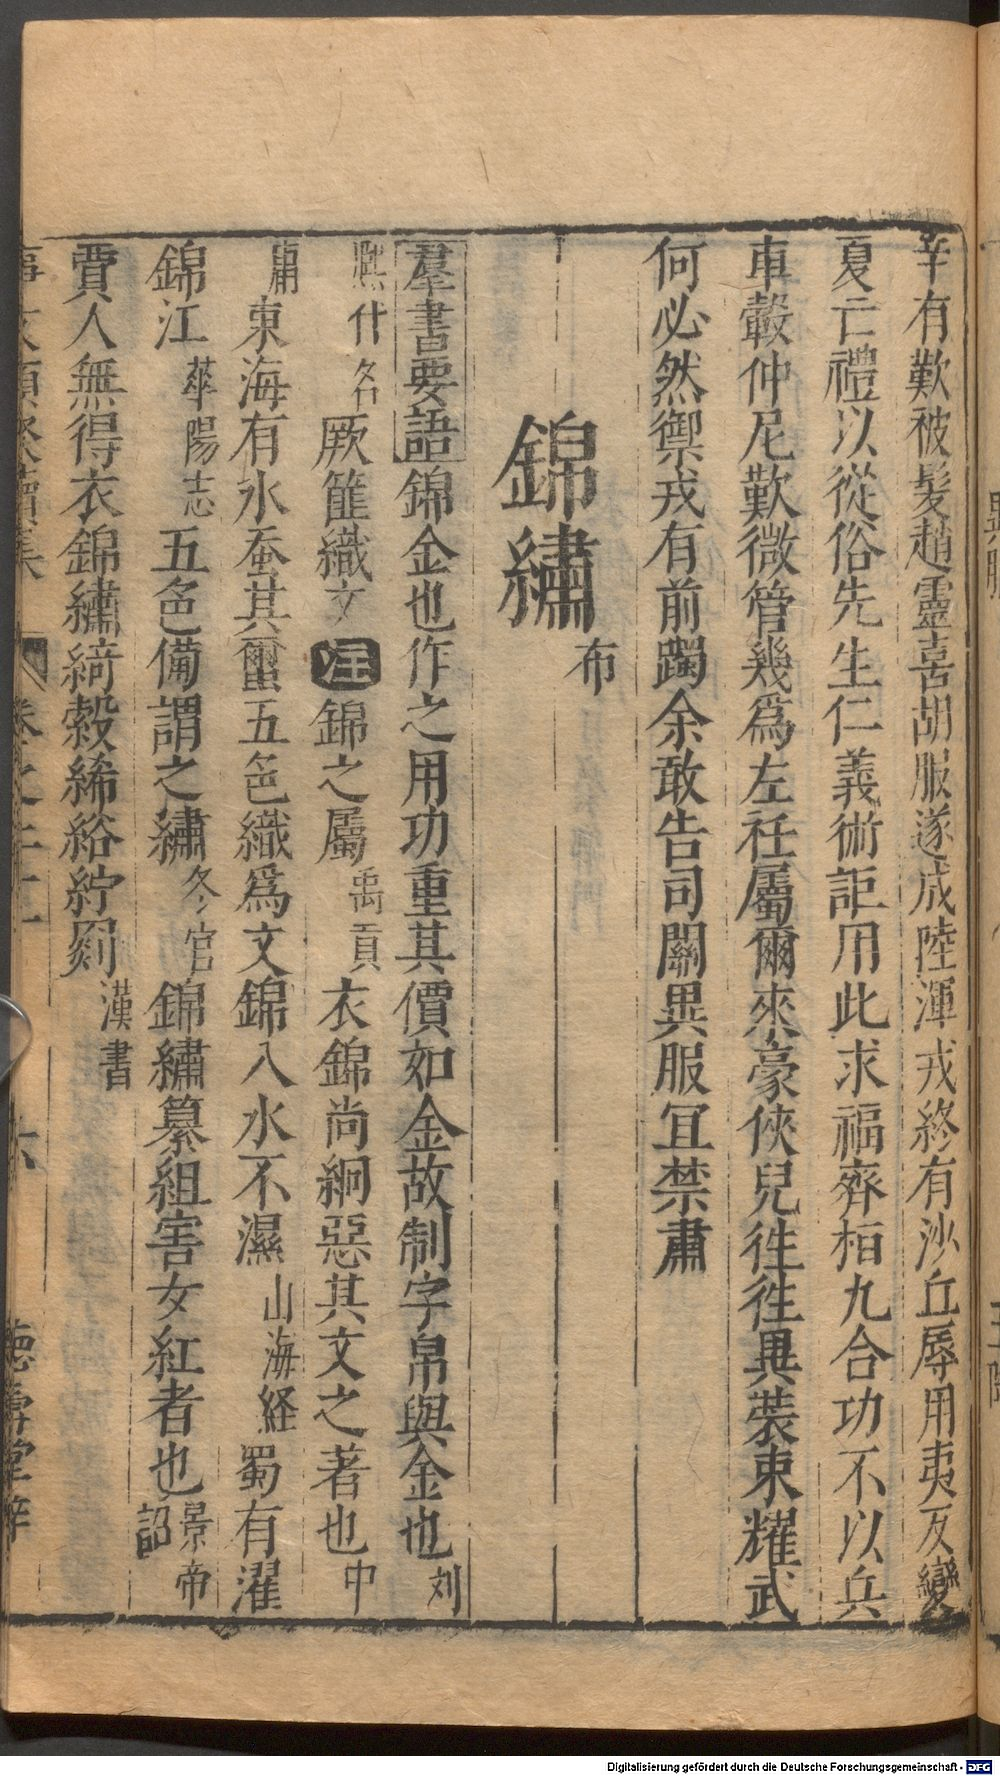 辛有歎被髮趙靈喜胡服遂成陸渾戎終有沙丘辱用夷反變
夏亡禮以從俗先生仁義術詎用此求福齊桓九合功不以兵
車轂仲尼歎微管幾爲左衽屬爾來豪俠兒徃徃異裝束耀武
何必然禦戎有前躅余敢告司關異服冝禁肅
錦繡布
羣書要語錦金也作之用功重其價如金故制字帛與金也刘
熈什名厥篚織文注錦之屬禹貢衣錦尚絅惡其文之著也中
庸東海有氷蚕其蠒五色織爲文錦入水不濕山海経蜀有濯
錦江華陽志五色備謂之繡冬官錦繡纂組害女紅者也景帝詔
賈人無得衣錦繡綺縠絺綌紵罽漢書
事文類聚續集 卷之二十一 六
Digitalisierung gefördert durch die Deutsche Forschungsgemeinschaft - DFG